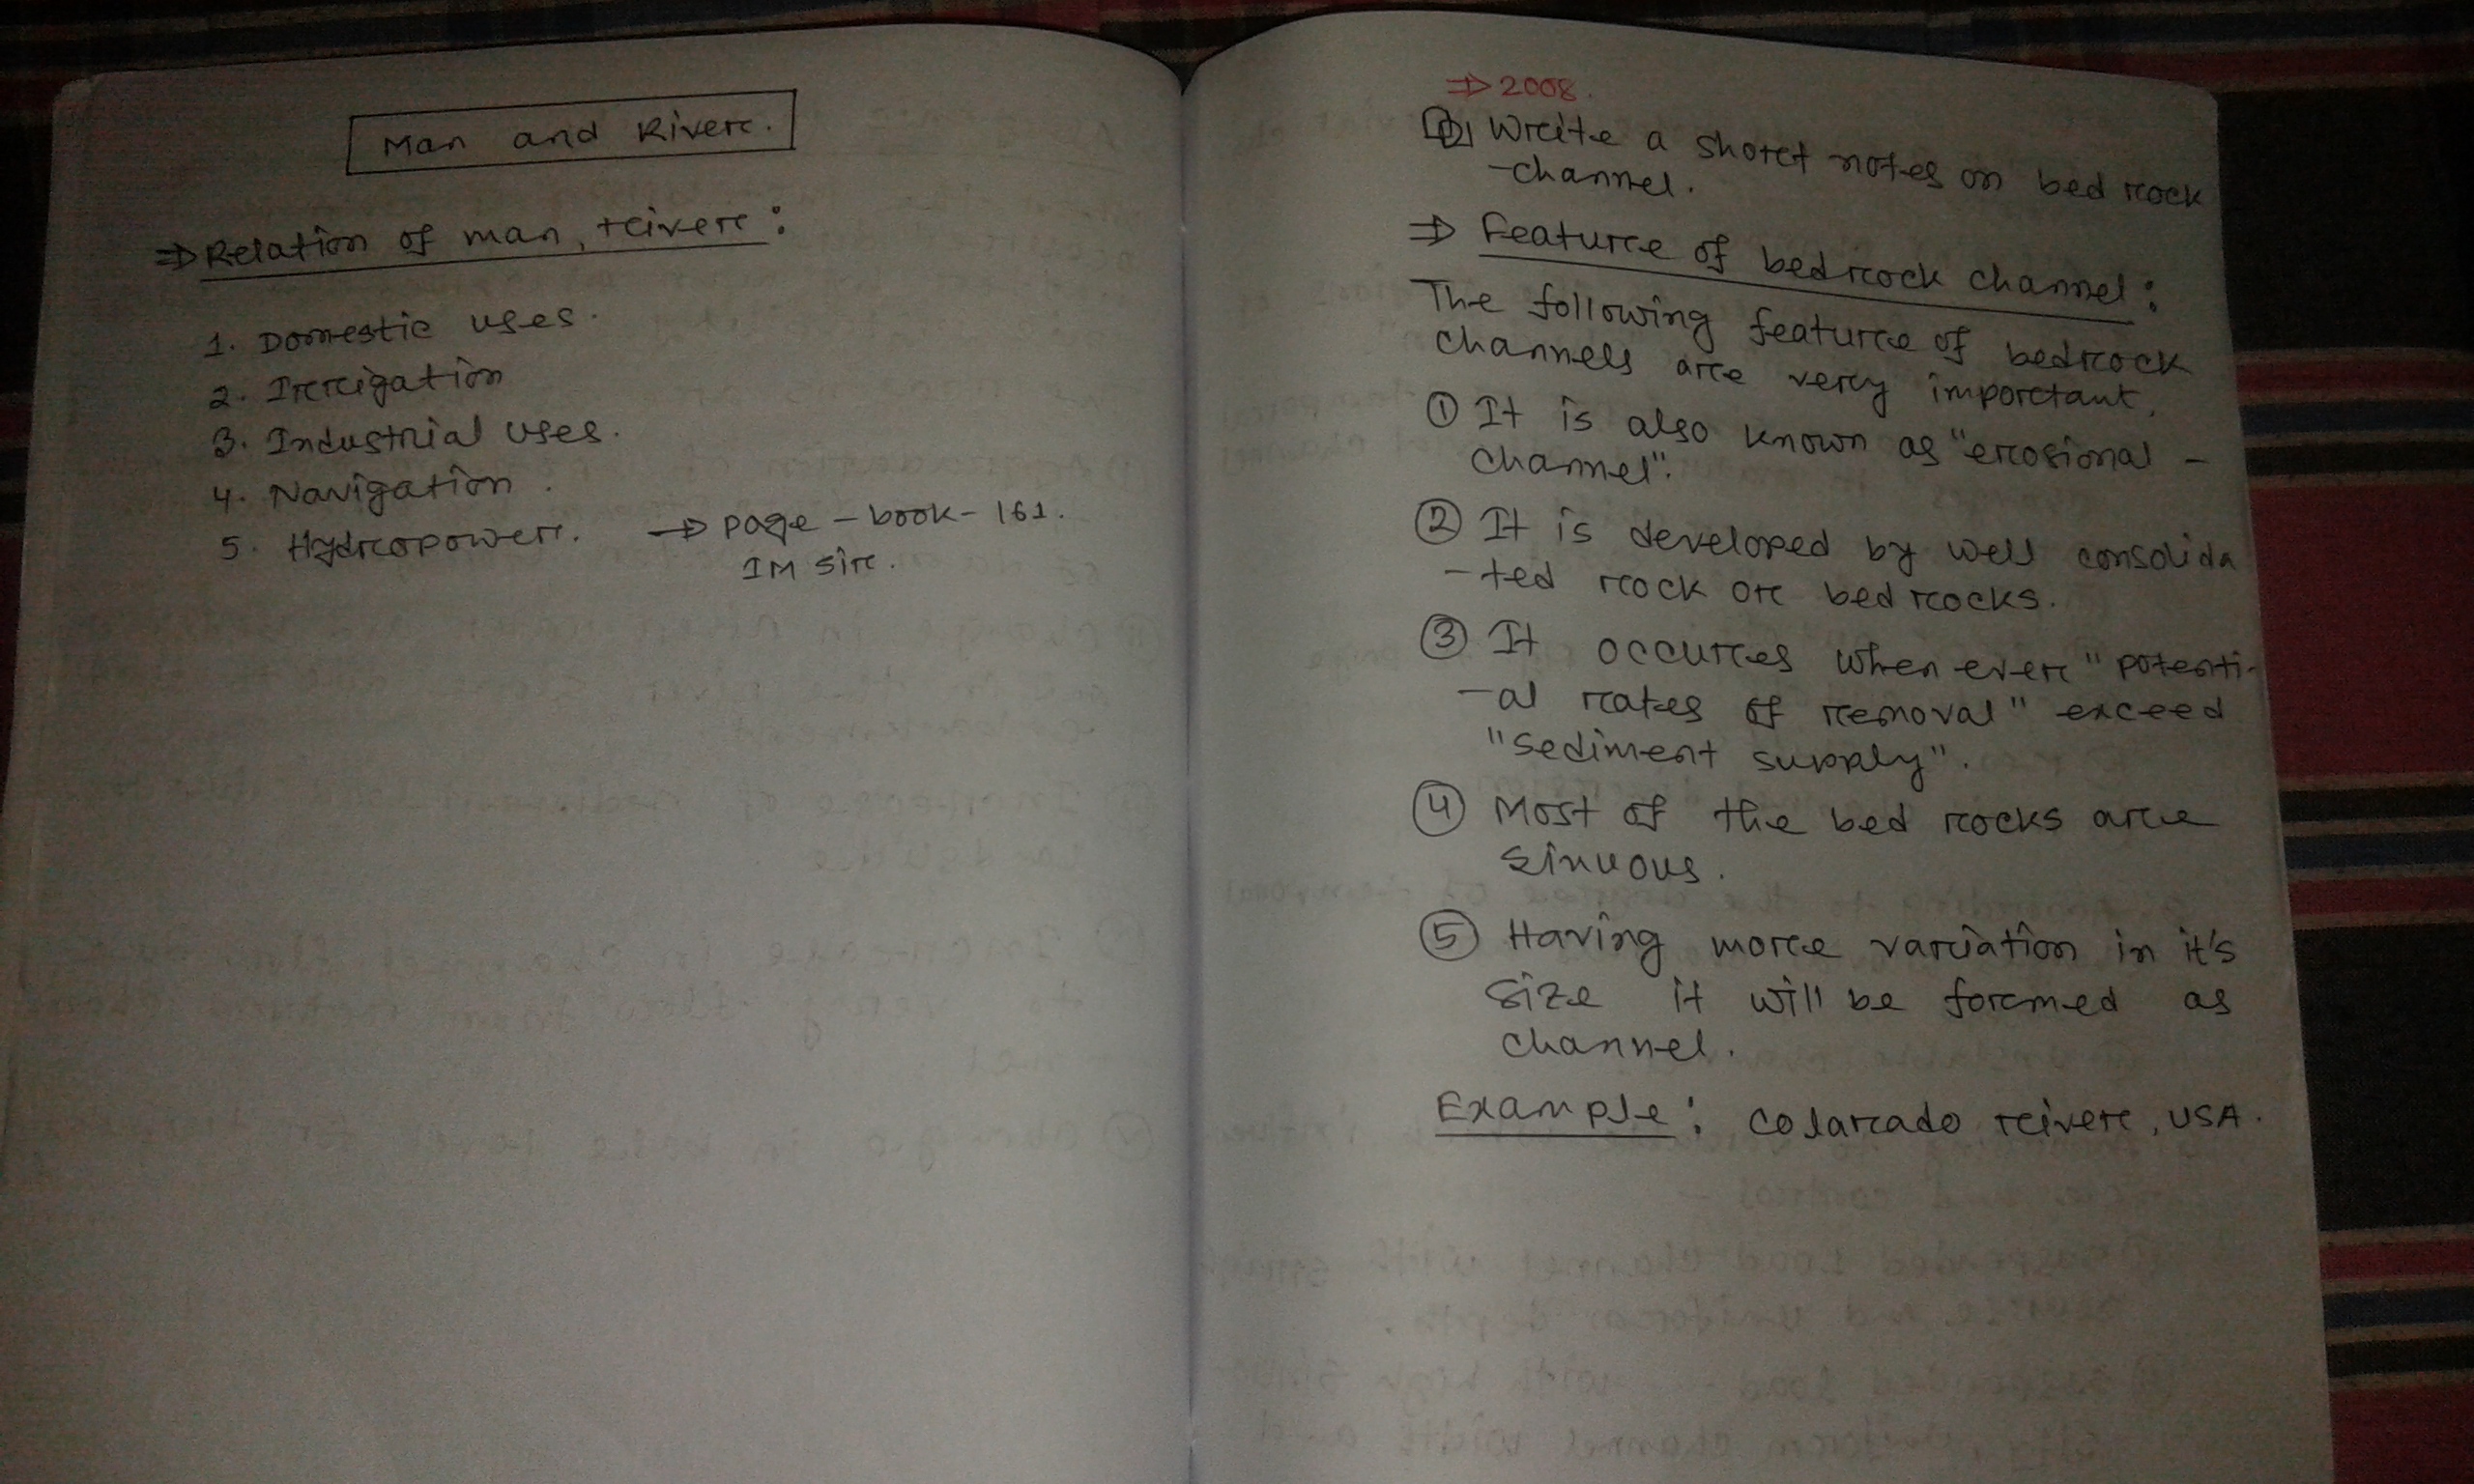 Man and River.
⇒ Relation of man, river:
1. Domestic uses.
2. Irrigation
3. Industrial uses.
4. Navigation.
5. Hydropower. → page - book - 161.
IM sir.
⇒ 2008.
Write a short notes on bed rock
-channel.
⇒ Feature of bedrock channel:
The following feature of bedrock
channels are very important.
① It is also known as "erosional -
channel".
② It is developed by well consolida
-ted rock or bed rocks.
③ It occures when ever "potenti-
-al rates of removal" exceed
"sediment supply".
④ Most of the bed rocks are
sinuous.
⑤ Having more variation in it's
size it will be formed as
channel.
Example: Colarado river, USA.